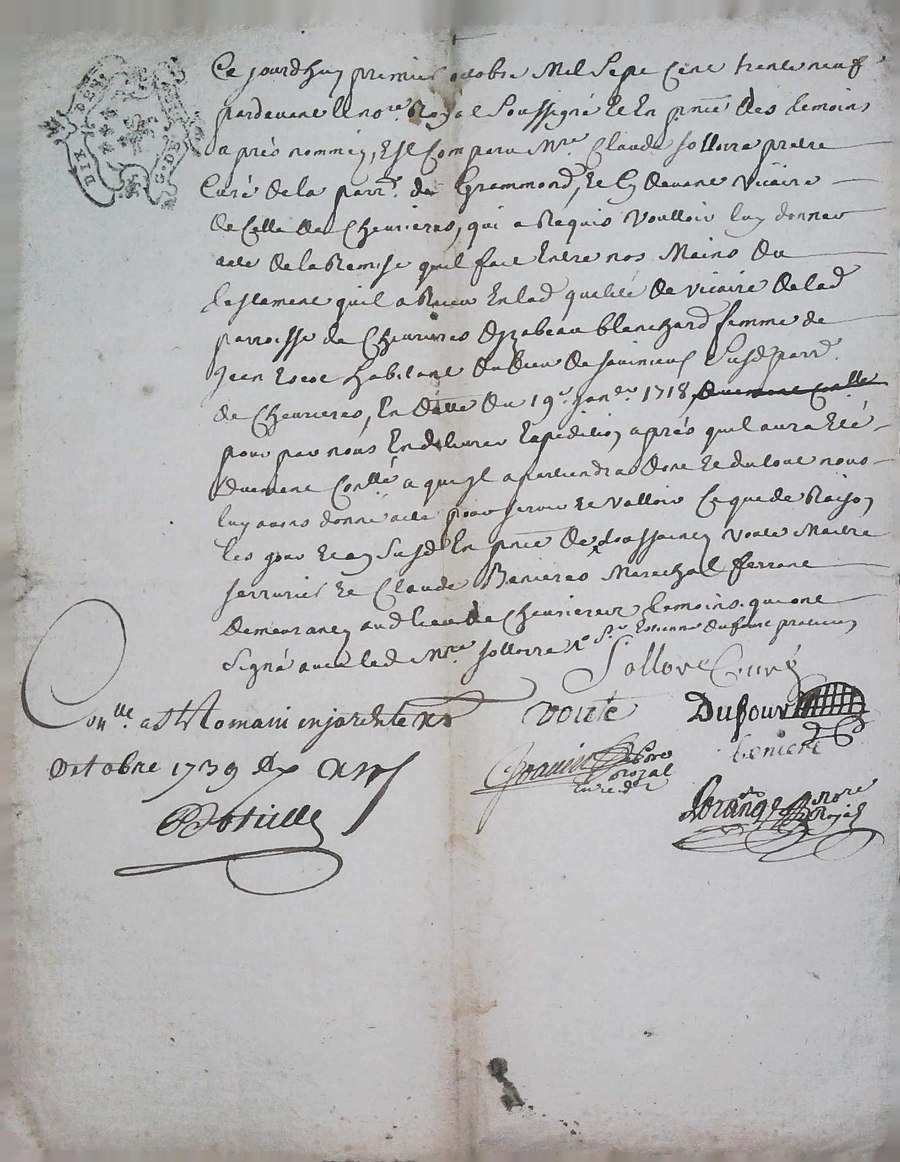 DIX DEN.
G. DE
Ce jourdhuy premier octobre Mil Sept Cent trente neuf
pardevant le nore Royal Soussigné et En pnce des temoins
apres nommez, Est Comparu Mre Claude Jollivre pretre
Curé de la parr. de Grammond, et Cy devant Vicaire
de Celle de Chevrieres, qui a Requis Voulloir luy donner
acte de la Remise quil fait Entre nos Mains du
testament quil a Receu En lad qualité de vicaire de lad
parroisse de Chevrieres dyzabeau blanchard femme de
Jean habitant du lieu de Susd parr.
de Chevrieres, En datte du 19e janer 1718,
pour par nous En delivrer Expedition apres quil aura Eté
duement Conllé a quy il apartiendra dont et du tout nous
luy avons donné acte pour servir et valloir Ce que de Raison
les jour et an Susd En pnce de toussaint Voute Maitre
serrurier et Claude Banieres Marechal ferrant
demeurant aud lieu de Chevrieres temoins qui ont
Signé avec led Mre Jollivre & Sr Estienne dufour praticien
Jollivre Curé
Voute Dufour
beniere
Royal
nore
Royal
Conlle a St Romain en jarest le
Octobre 1739